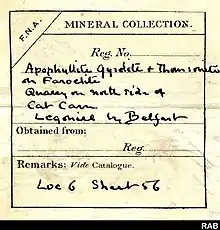 F.N.A.
MINERAL COLLECTION.
Reg. No.
Apophyllite Gyrolite + Thomsonite
on Faroelite
Quarry on north side of
Cat Carn
Legoniel by Belfast
Obtained from:
Reg.
Remarks: Vide Catalogue.
Loc 6 Sheet 56
RAB